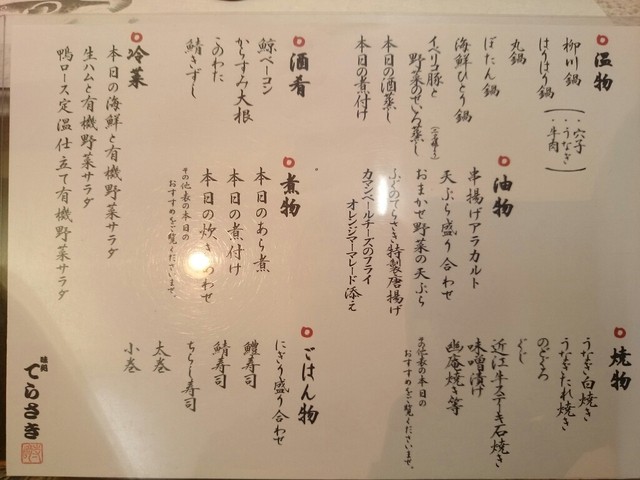 温物
柳川鍋
(・穴子
・うなぎ
・牛肉)
はりはり鍋
丸鍋
ぼたん鍋
海鮮ひとり鍋
イベリコ豚と
野菜のせいろ蒸し
本日の酒蒸し
本日の煮付け
酒肴
鯨ベーコン
からすみ大根
このわた
鯖きずし
冷菜
本日の海鮮と有機野菜サラダ
生ハムと有機野菜サラダ
鴨ロース定温仕立て有機野菜サラダ
油物
串揚げアラカルト
天ぷら盛り合わせ
おまかせ野菜の天ぷら
ふぐのてらさき特製唐揚げ
カマンベールチーズのフライ
オレンジマーマレード添え
煮物
本日のあら煮
本日の煮付け
本日の炊き合わせ
その他表の本日の
おすすめをご覧くださいませ。
焼物
うなぎ白焼き
うなぎたれ焼き
のどぐろ
ぐじ
近江牛ステーキ石焼き
味噌漬け
幽庵焼き等
その他表の本日の
おすすめをご覧くださいませ。
ごはん物
にぎり盛り合わせ
鱧寿司
鯖寿司
ちらし寿司
太巻
小巻
味処
てらさき